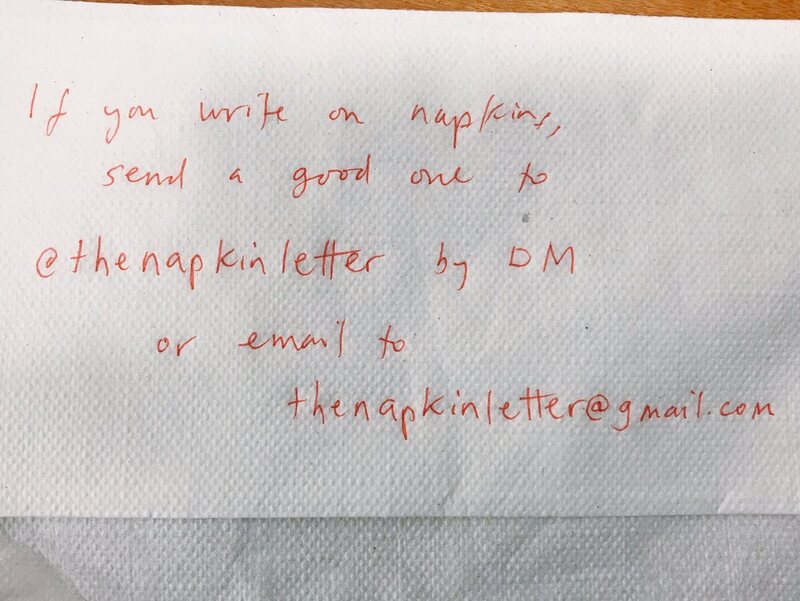 If you write on napkins,
send a good one to
@thenapkinletter by DM
or email to
thenapkinletter@gmail.com